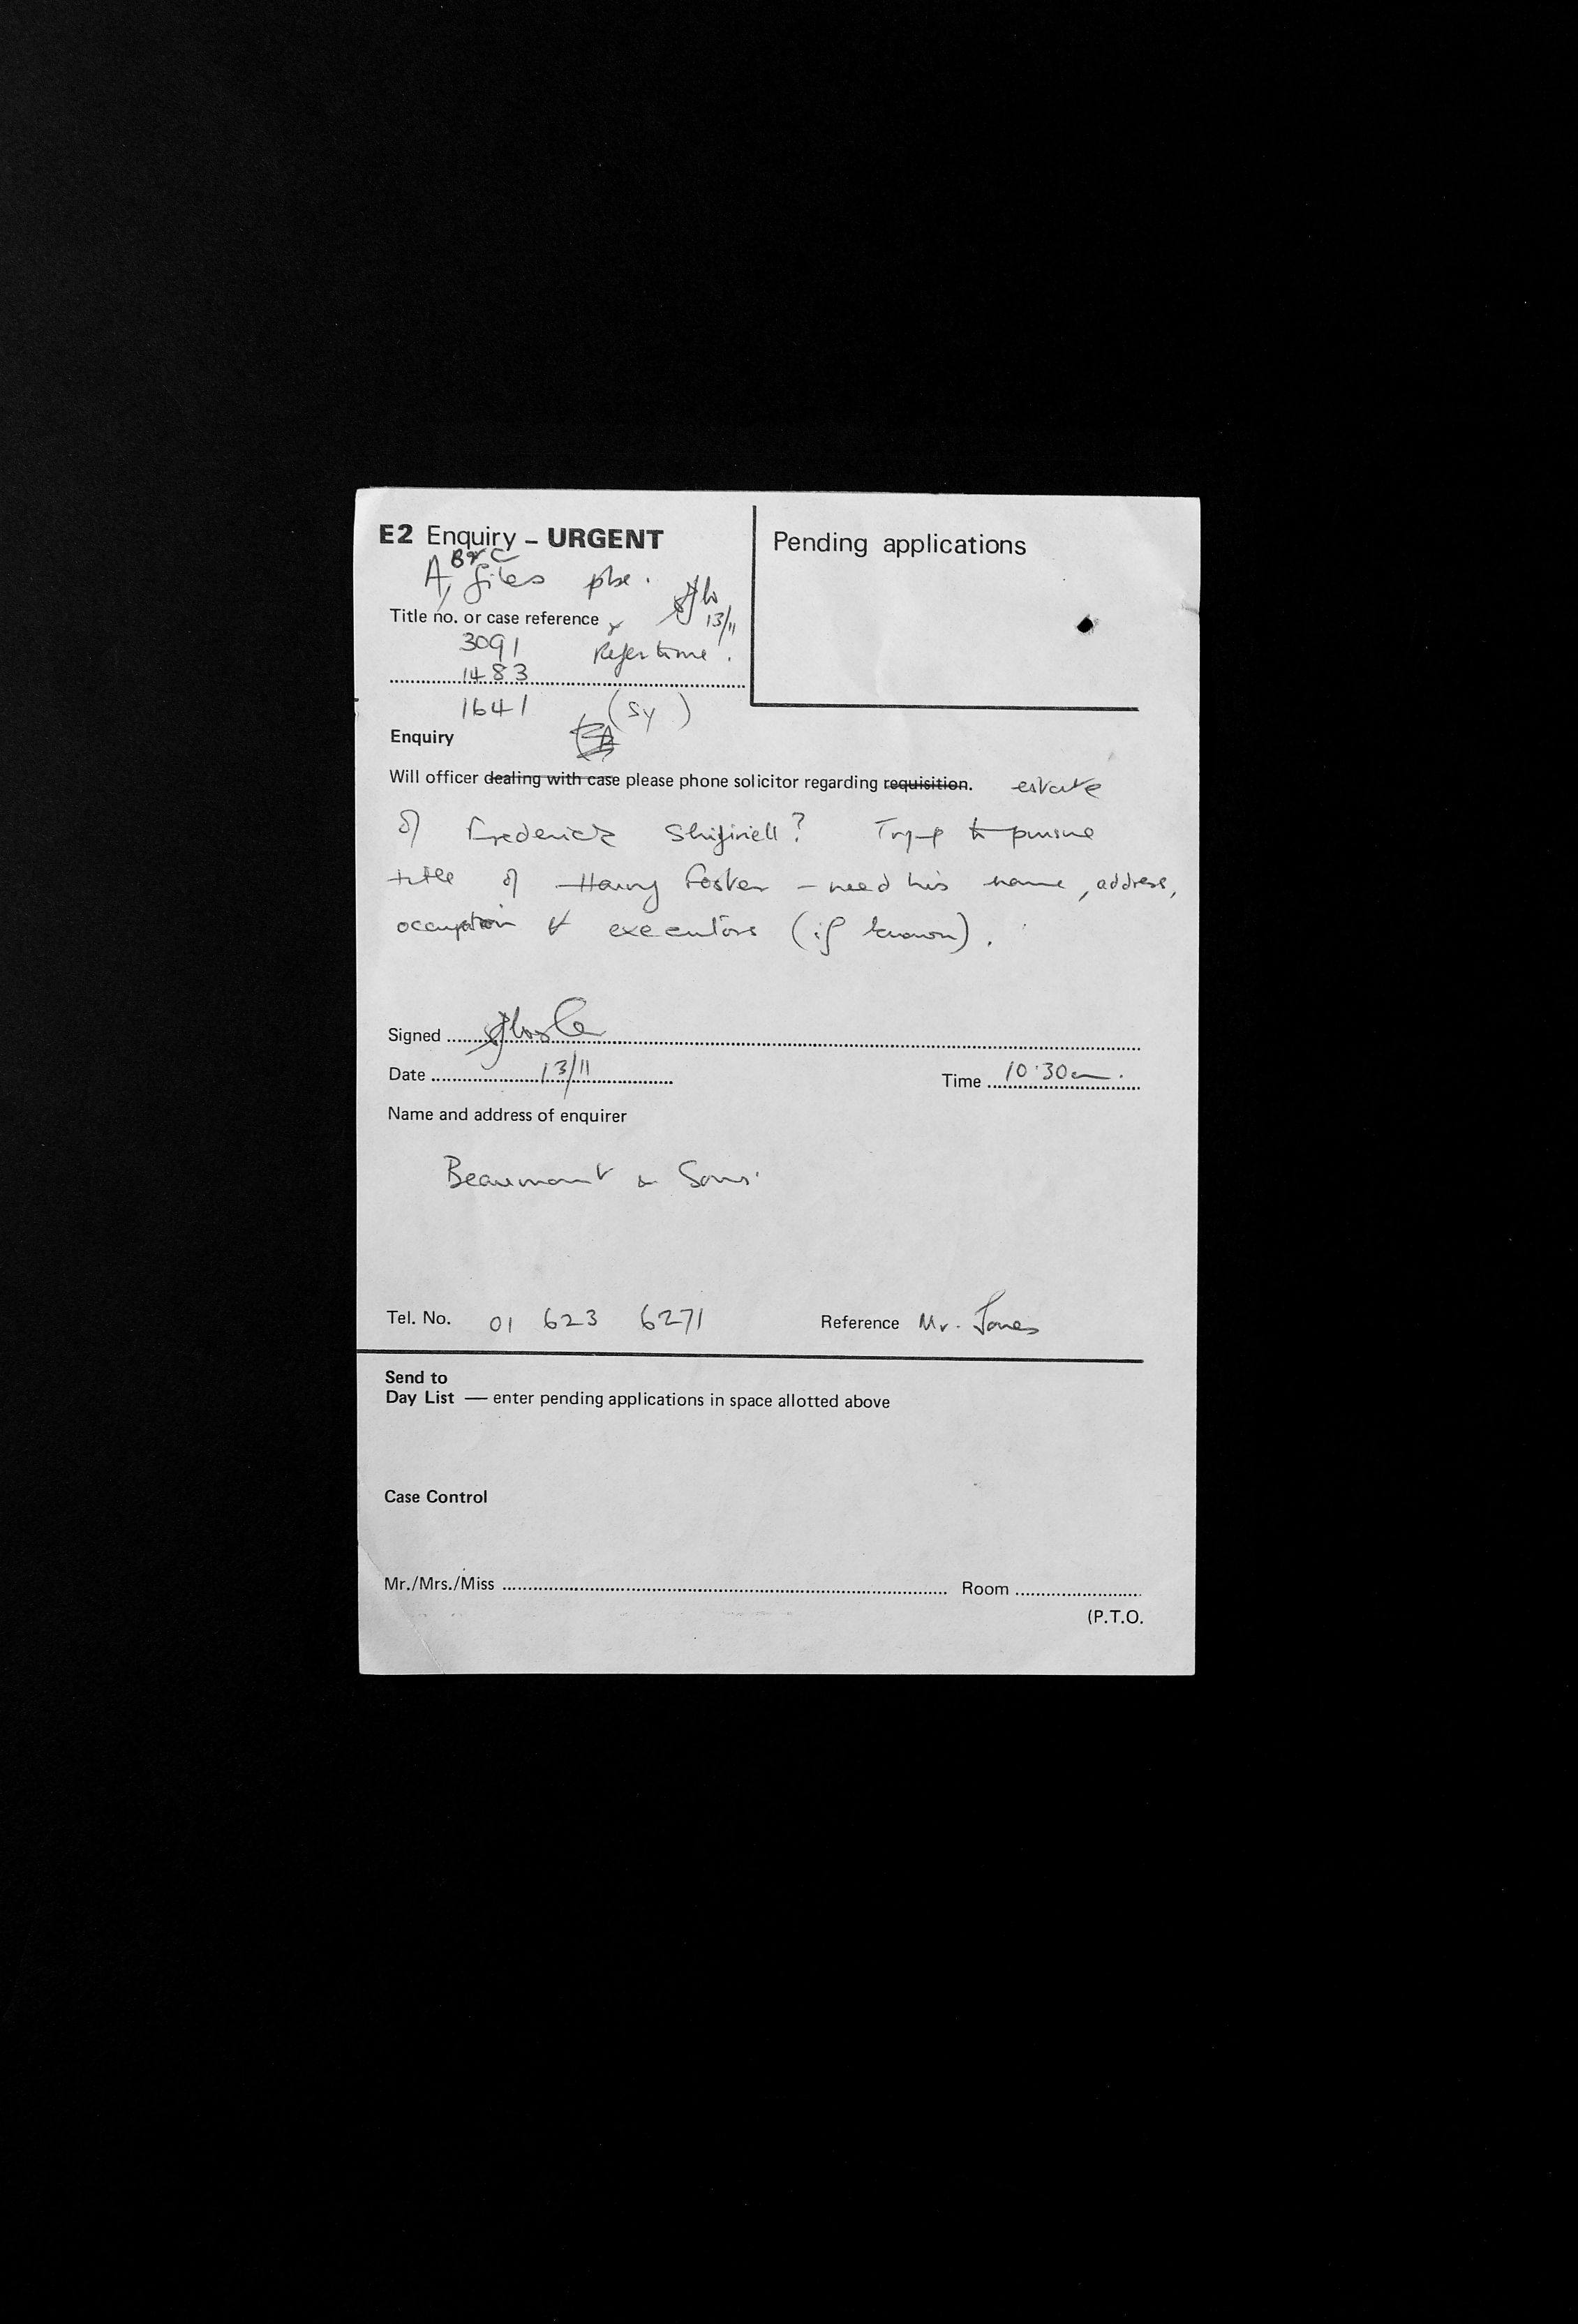 E2 Enquiry – URGENT
Pending applications
B & C
A, files pse.
13/11
Title no. or case reference
3091
Refer to me.
1483
1641 (SY)
Enquiry
Will officer dealing with case please phone solicitor regarding requisition. estate
of Frederick ? to pursue
title of Harry Foster – need his name, address,
occupation & executors (if known).
Signed
Date 13/11
Time 10.30am.
Name and address of enquirer
Beaumont & Sons.
Tel. No. 01 623 6271
Reference Mr. Jones
Send to
Day List — enter pending applications in space allotted above
Case Control
Mr./Mrs./Miss
Room
(P.T.O.